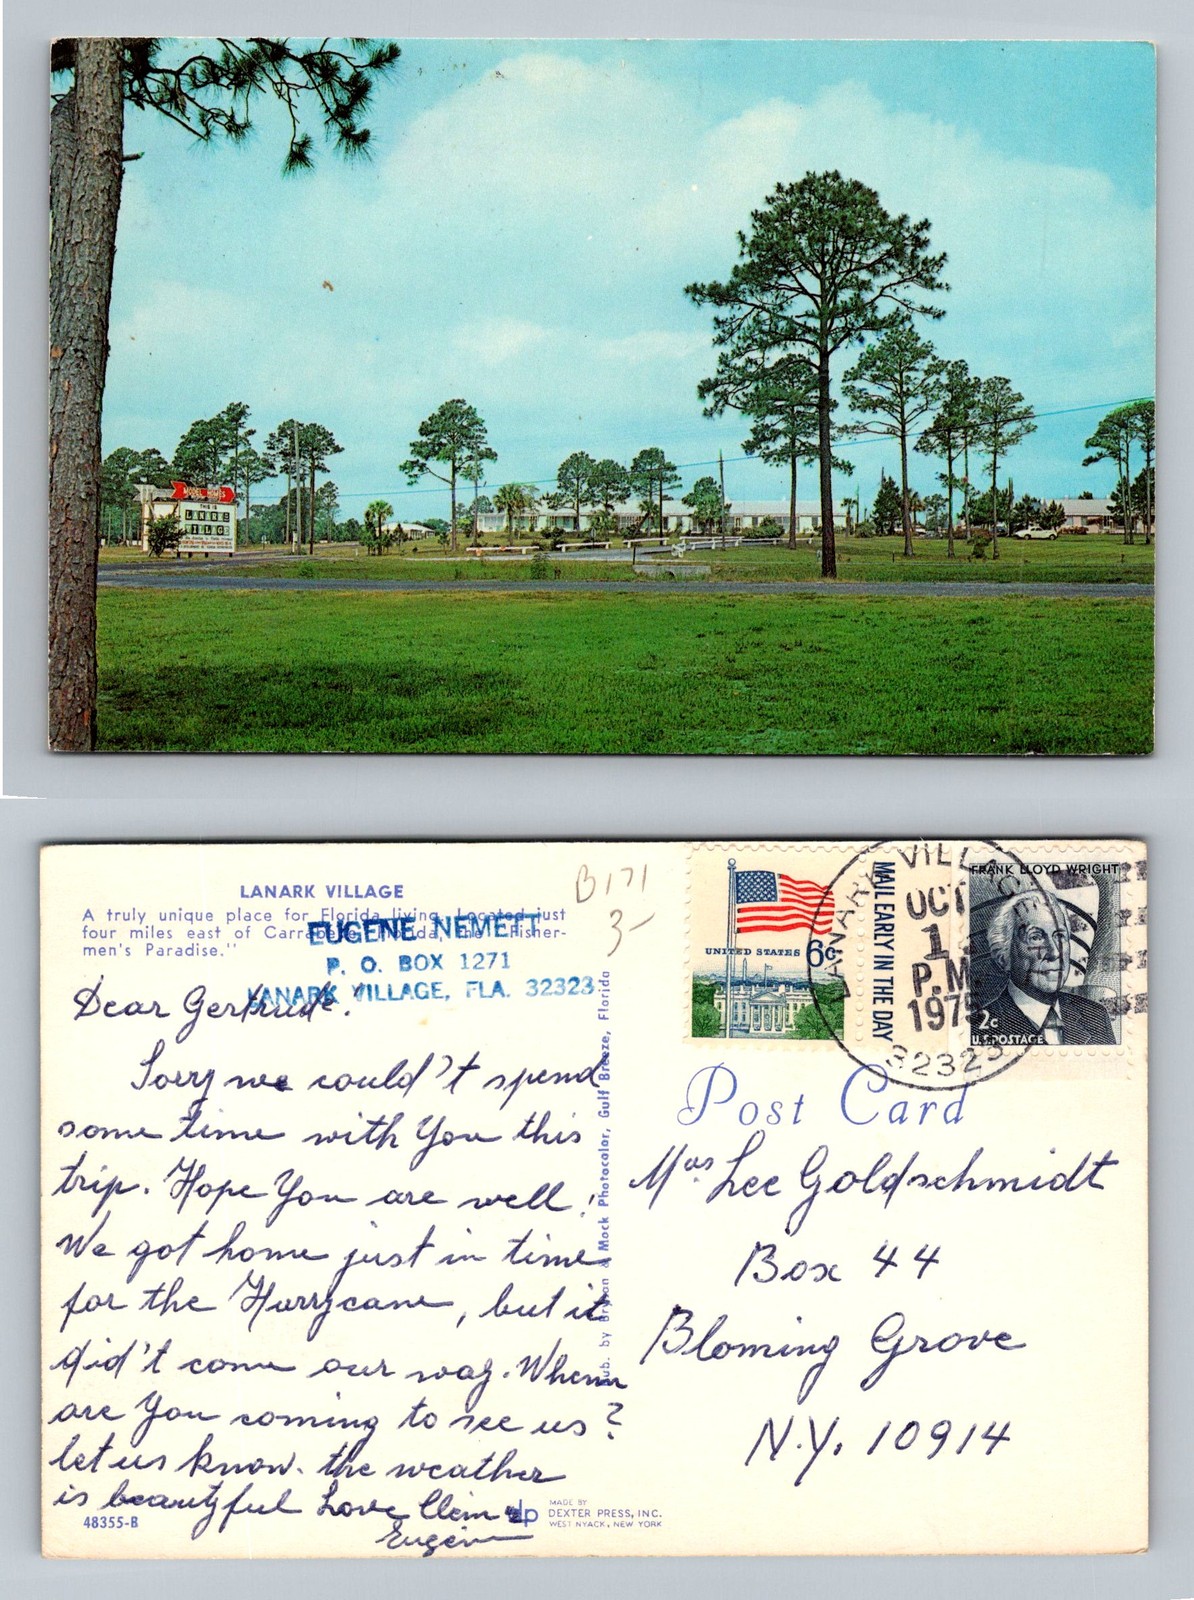 MODEL HOMES
THIS IS
LANARK
VILLAGE
B171
3-
LANARK VILLAGE
A truly unique place for Florida living. Located just
four miles east of Carrabelle, Florida, the "Fisher-
men's Paradise."
EUGENE NEMETT
P. O. BOX 1271
LANARK VILLAGE, FLA. 32323
Dear Gertrude!
Sorry we could't spend
some time with You this
trip. Hope You are well!
We got home just in time
for the Hurrycane, but it
did't come our way. When
are You coming to see us?
let us know. the weather
is beautyful Love Clem &
Eugene
48355-B
dp
MADE BY
DEXTER PRESS, INC.
WEST NYACK, NEW YORK
Pub. by Bryson & Mack Photocolor, Gulf Breeze, Florida
UNITED STATES 6c
MAIL EARLY IN THE DAY
LANARK VILLAGE
OCT
1
P.M
1975
32323
FRANK LLOYD WRIGHT
2c
U.S. POSTAGE
Post Card
Mrs Lee Goldschmidt
Box 44
Bloming Grove
N.Y. 10914